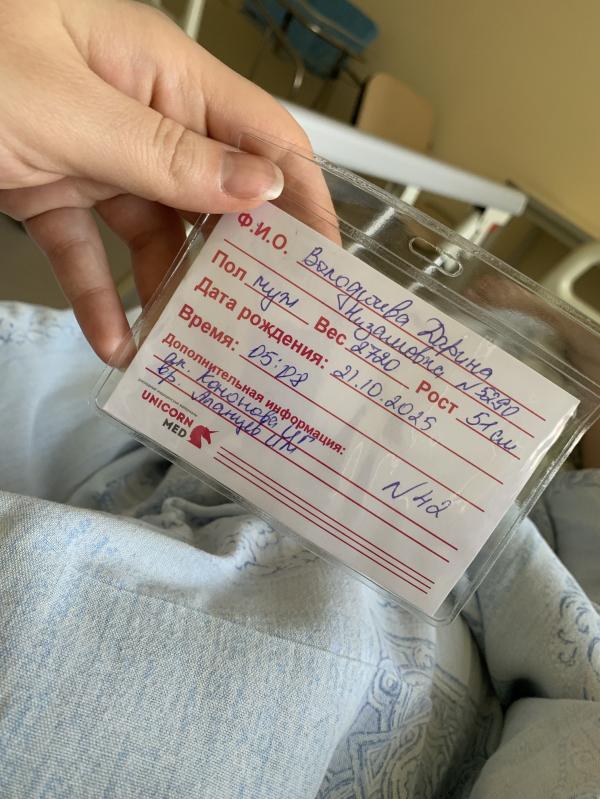 Ф.И.О. Володоева Дарина
Низамовна №5290
Пол муж Вес 2720 Рост 51 см
Дата рождения: 21.10.2025
Время: 05:08
Дополнительная информация:
ак. Кононова И.Г
вр. И М
№42
UNICORN
MED